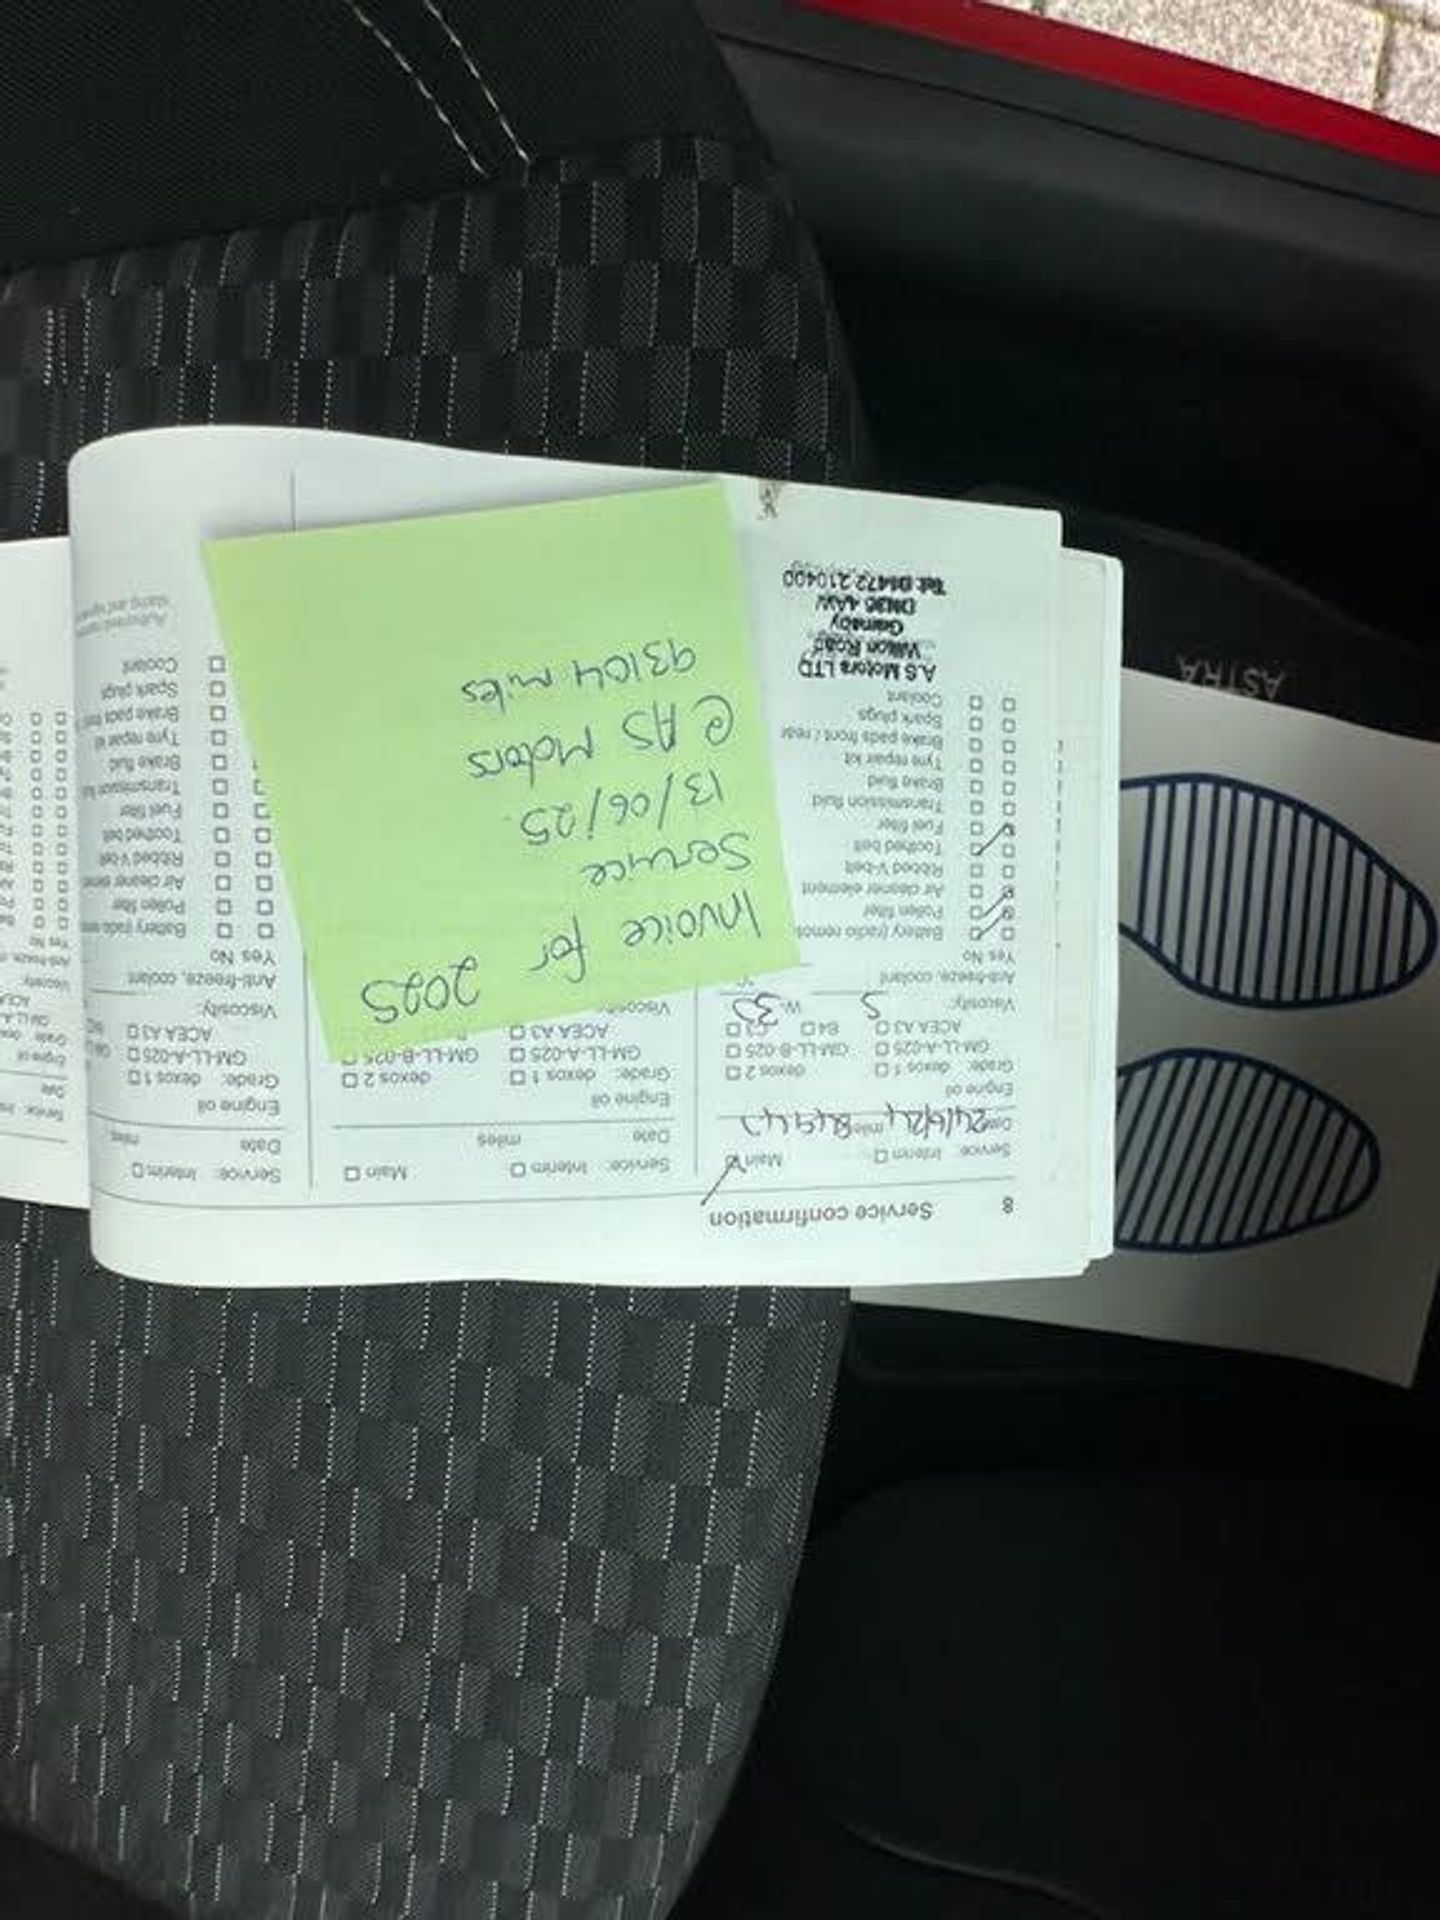 8 Service confirmation
Service: Interim Main
Date 24/6/24 miles
Engine oil
Grade: dexos 1 dexos 2
GM-LL-A-025 GM-LL-B-025
ACEA A3 B4 C3
Viscosity: 5 W 30
Anti-freeze, coolant
Yes No
Battery (radio remote
Pollen filter
Air cleaner element
Ribbed V-belt
Toothed belt
Fuel filter
Transmission fluid
Brake fluid
Tyre repair kit
Brake pads front / rear
Spark plugs
Coolant
A.S Motors LTD
Wilton Road
DN36 4AW
Tel: 01472 210400
Service: Interim Main
Date miles
Engine oil
Grade: dexos 1 dexos 2
GM-LL-A-025 GM-LL-B-025
ACEA A3
Invoice for 2025
Service
13/06/25.
@ AS Motors
93104 miles
Service: Interim
Date miles
Engine oil
Grade: dexos 1
GM-LL-A-025
ACEA A3
Viscosity
Anti-freeze, coolant
Yes No
Battery (radio
Pollen filter
Air cleaner
Ribbed V-belt
Toothed belt
Fuel filter
Transmission
Brake fluid
Tyre repair kit
Brake pads
Spark plugs
Coolant
ASTRA